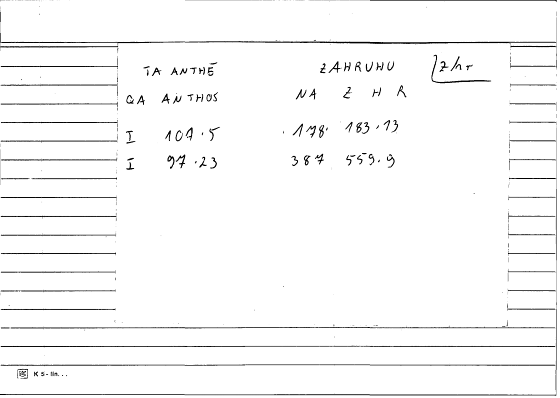 TA ANTHĒ ZAHRUHU zhr
QA ANTHOS NA Z H R
I 107.5 178. 183.13
I 97.23 387 559.9
K 5 - lin. . .